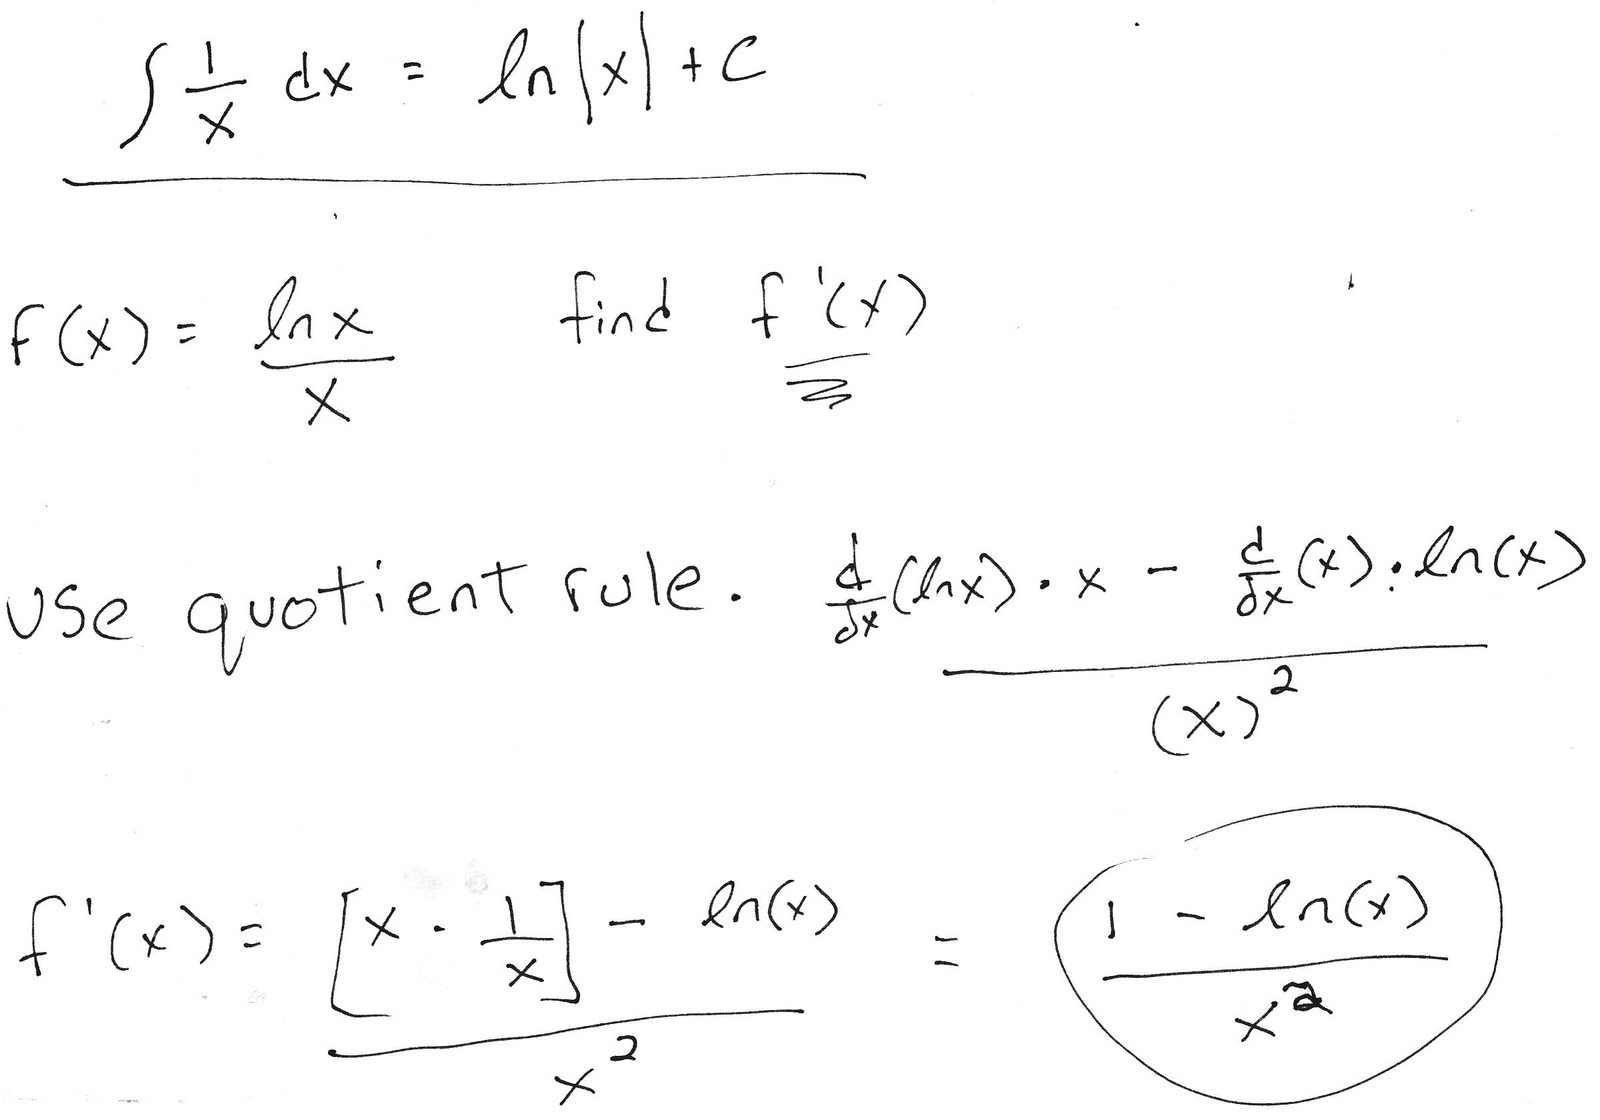 ∫ 1/x dx = ln|x| + C
f(x) = lnx/x find f'(x)
use quotient rule. (d/dx(lnx) · x − d/dx(x) · ln(x))/(x)²
f'(x) = ([x · 1/x] − ln(x))/x² = (1 − ln(x))/x²